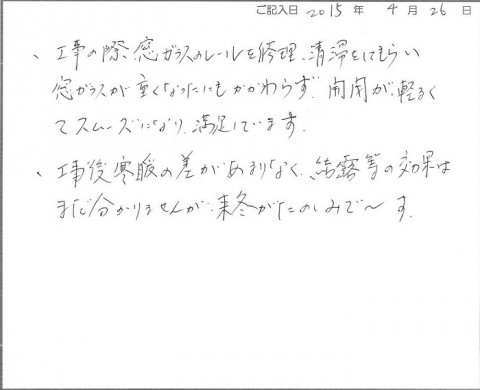 ご記入日 2015 年 4 月 26 日
、工事の際、窓ガラスのレールを修理、清掃をしてもらい
窓ガラスが重くなったにもかかわらず、開閉が、軽るく
てスムーズになり、満足しています。
、工事後寒暖の差があまりなく、結露等の効果は
まだ分かりませんが、来冬がたのしみで〜す。